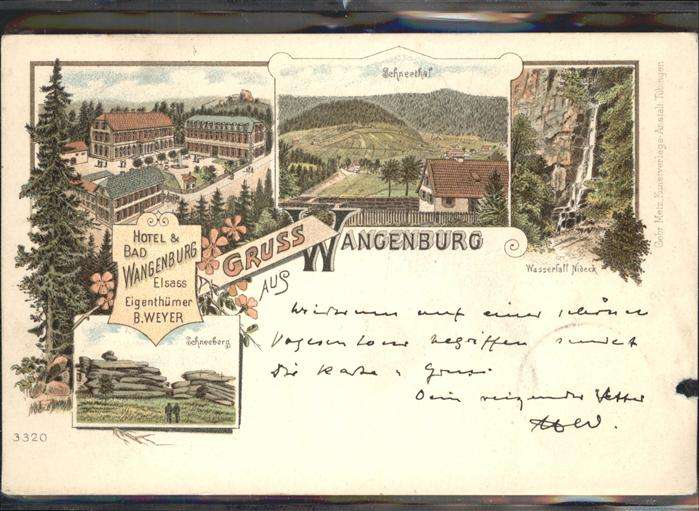 Schneethal
HOTEL &
BAD
WANGENBURG
Elsass
Eigenthümer
B. WEYER
GRUSS
AUS
WANGENBURG
Wasserfall Nideck
Gebr. Metz, Kunstverlags-Anstalt Tübingen
Schneeberg
3320
Wiederum auf einer schönen
Vogesentour begriffen sendet
die Karte u. Gruss
Dein Vetter